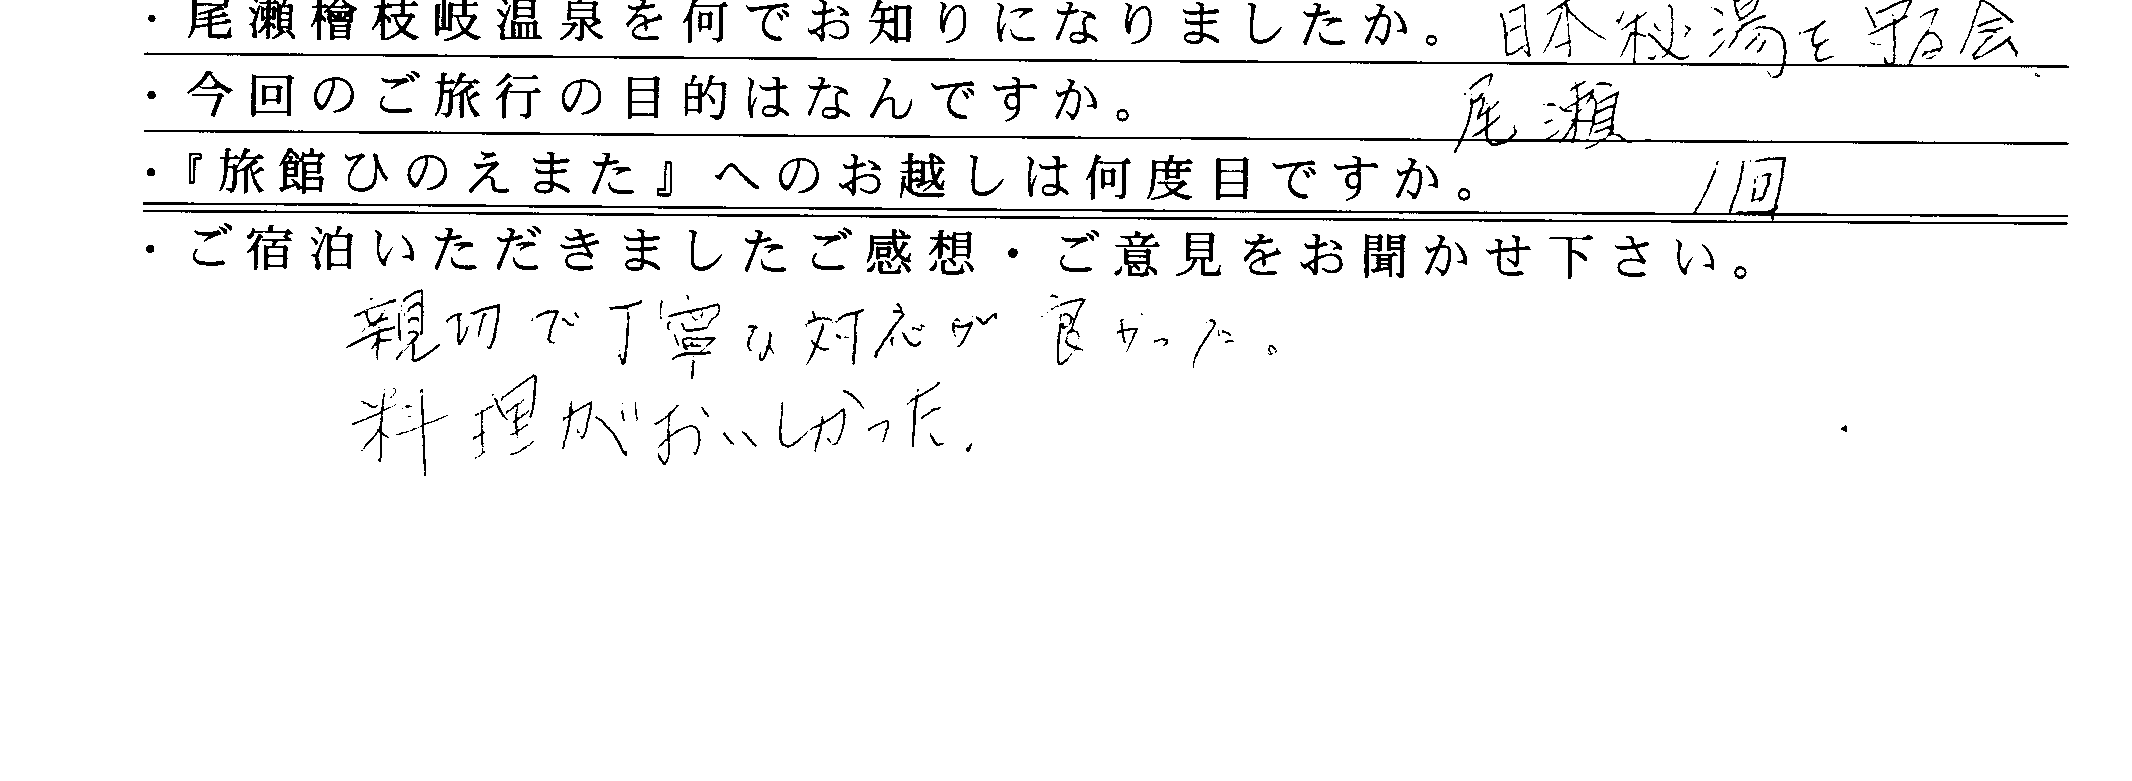 ・尾瀬檜枝岐温泉を何でお知りになりましたか。 日本秘湯を守る会
・今回のご旅行の目的はなんですか。 尾瀬
・『旅館ひのえまた』へのお越しは何度目ですか。 1回
・ご宿泊いただきましたご感想・ご意見をお聞かせ下さい。
親切で丁寧な対応が良かった。
料理がおいしかった.